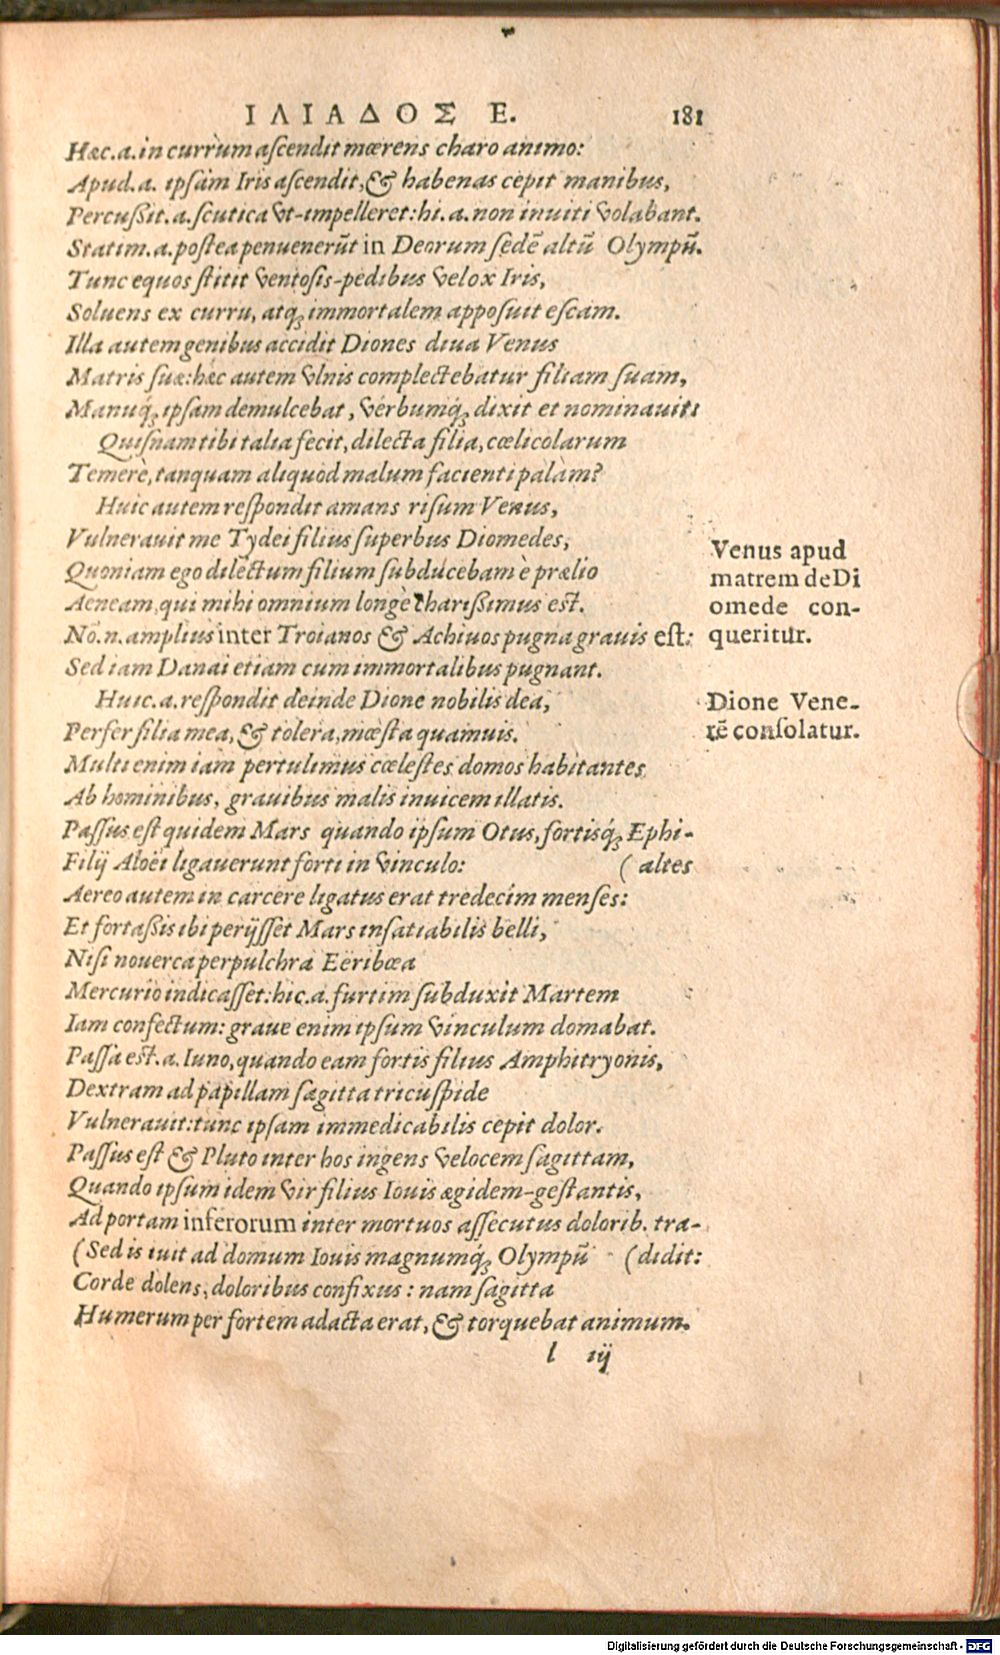 ΙΛΙΑΔΟΣ Ε. 181
Hæc.a.in currùm ascendit mœrens charo animo:
Apud.a. ipsam Iris ascendit,& habenas cepit manibus,
Percußit.a.scutica vt-impelleret:hi.a.non inuiti volabant.
Statim.a.postea peruenerũt in Deorum sedẽ altũ Olympũ.
Tunc equos stitit ventosis-pedibus velox Iris,
Soluens ex curru, atq; immortalem apposuit escam.
Illa autem genibus accidit Diones diua Venus
Matris suæ:hæc autem vlnis complectebatur filiam suam,
Manuq́; ipsam demulcebat, verbumq́; dixit et nominauit:
Quisnam tibi talia fecit, dilecta filia, cœlicolarum
Temerè, tanquam aliquod malum facienti palàm?
Huic autem respondit amans risum Venus,
Vulnerauit me Tydei filius superbus Diomedes,
Quoniam ego dilectum filium subducebam è prælio
Aeneam, qui mihi omnium longè charißimus est.
Nõ.n.amplius inter Troianos & Achiuos pugna grauis est:
Sed iam Danai etiam cum immortalibus pugnant.
Huic.a.respondit deinde Dione nobilis dea,
Perfer filia mea, & tolera, mœsta quamuis.
Multi enim iàm pertulimus cœlestes domos habitantes
Ab hominibus, grauibus malis inuicem illatis.
Passus est quidem Mars quando ipsum Otus, fortisq́; Ephi-
Filij Aloëi ligauerunt forti in vinculo: (altes
Aereo autem in carcere ligatus erat tredecim menses:
Et fortaßis ibi perijsset Mars insatiabilis belli,
Nisi nouerca perpulchra Eeribœa
Mercurio indicasset:hic.a.furtim subduxit Martem
Iam confectum: graue enim ipsum vinculum domabat.
Passa est.a.Iuno, quando eam fortis filius Amphitryonis,
Dextram ad papillam sagitta tricuspide
Vulnerauit:tunc ipsam immedicabilis cepit dolor.
Passus est & Pluto inter hos ingens velocem sagittam,
Quando ipsum idem vir filius Iouis ægidem-gestantis,
Ad portam inferorum inter mortuos assecutus dolorib. tra-
(Sed is iuit ad domum Iouis magnumq́; Olympũ (didit:
Corde dolens, doloribus confixus: nam sagitta
Humerum per fortem adacta erat, & torquebat animum.
l iij
Venus apud
matrem de Di
omede con-
queritur.
Dione Vene-
rẽ consolatur.
Digitalisierung gefördert durch die Deutsche Forschungsgemeinschaft - DFG